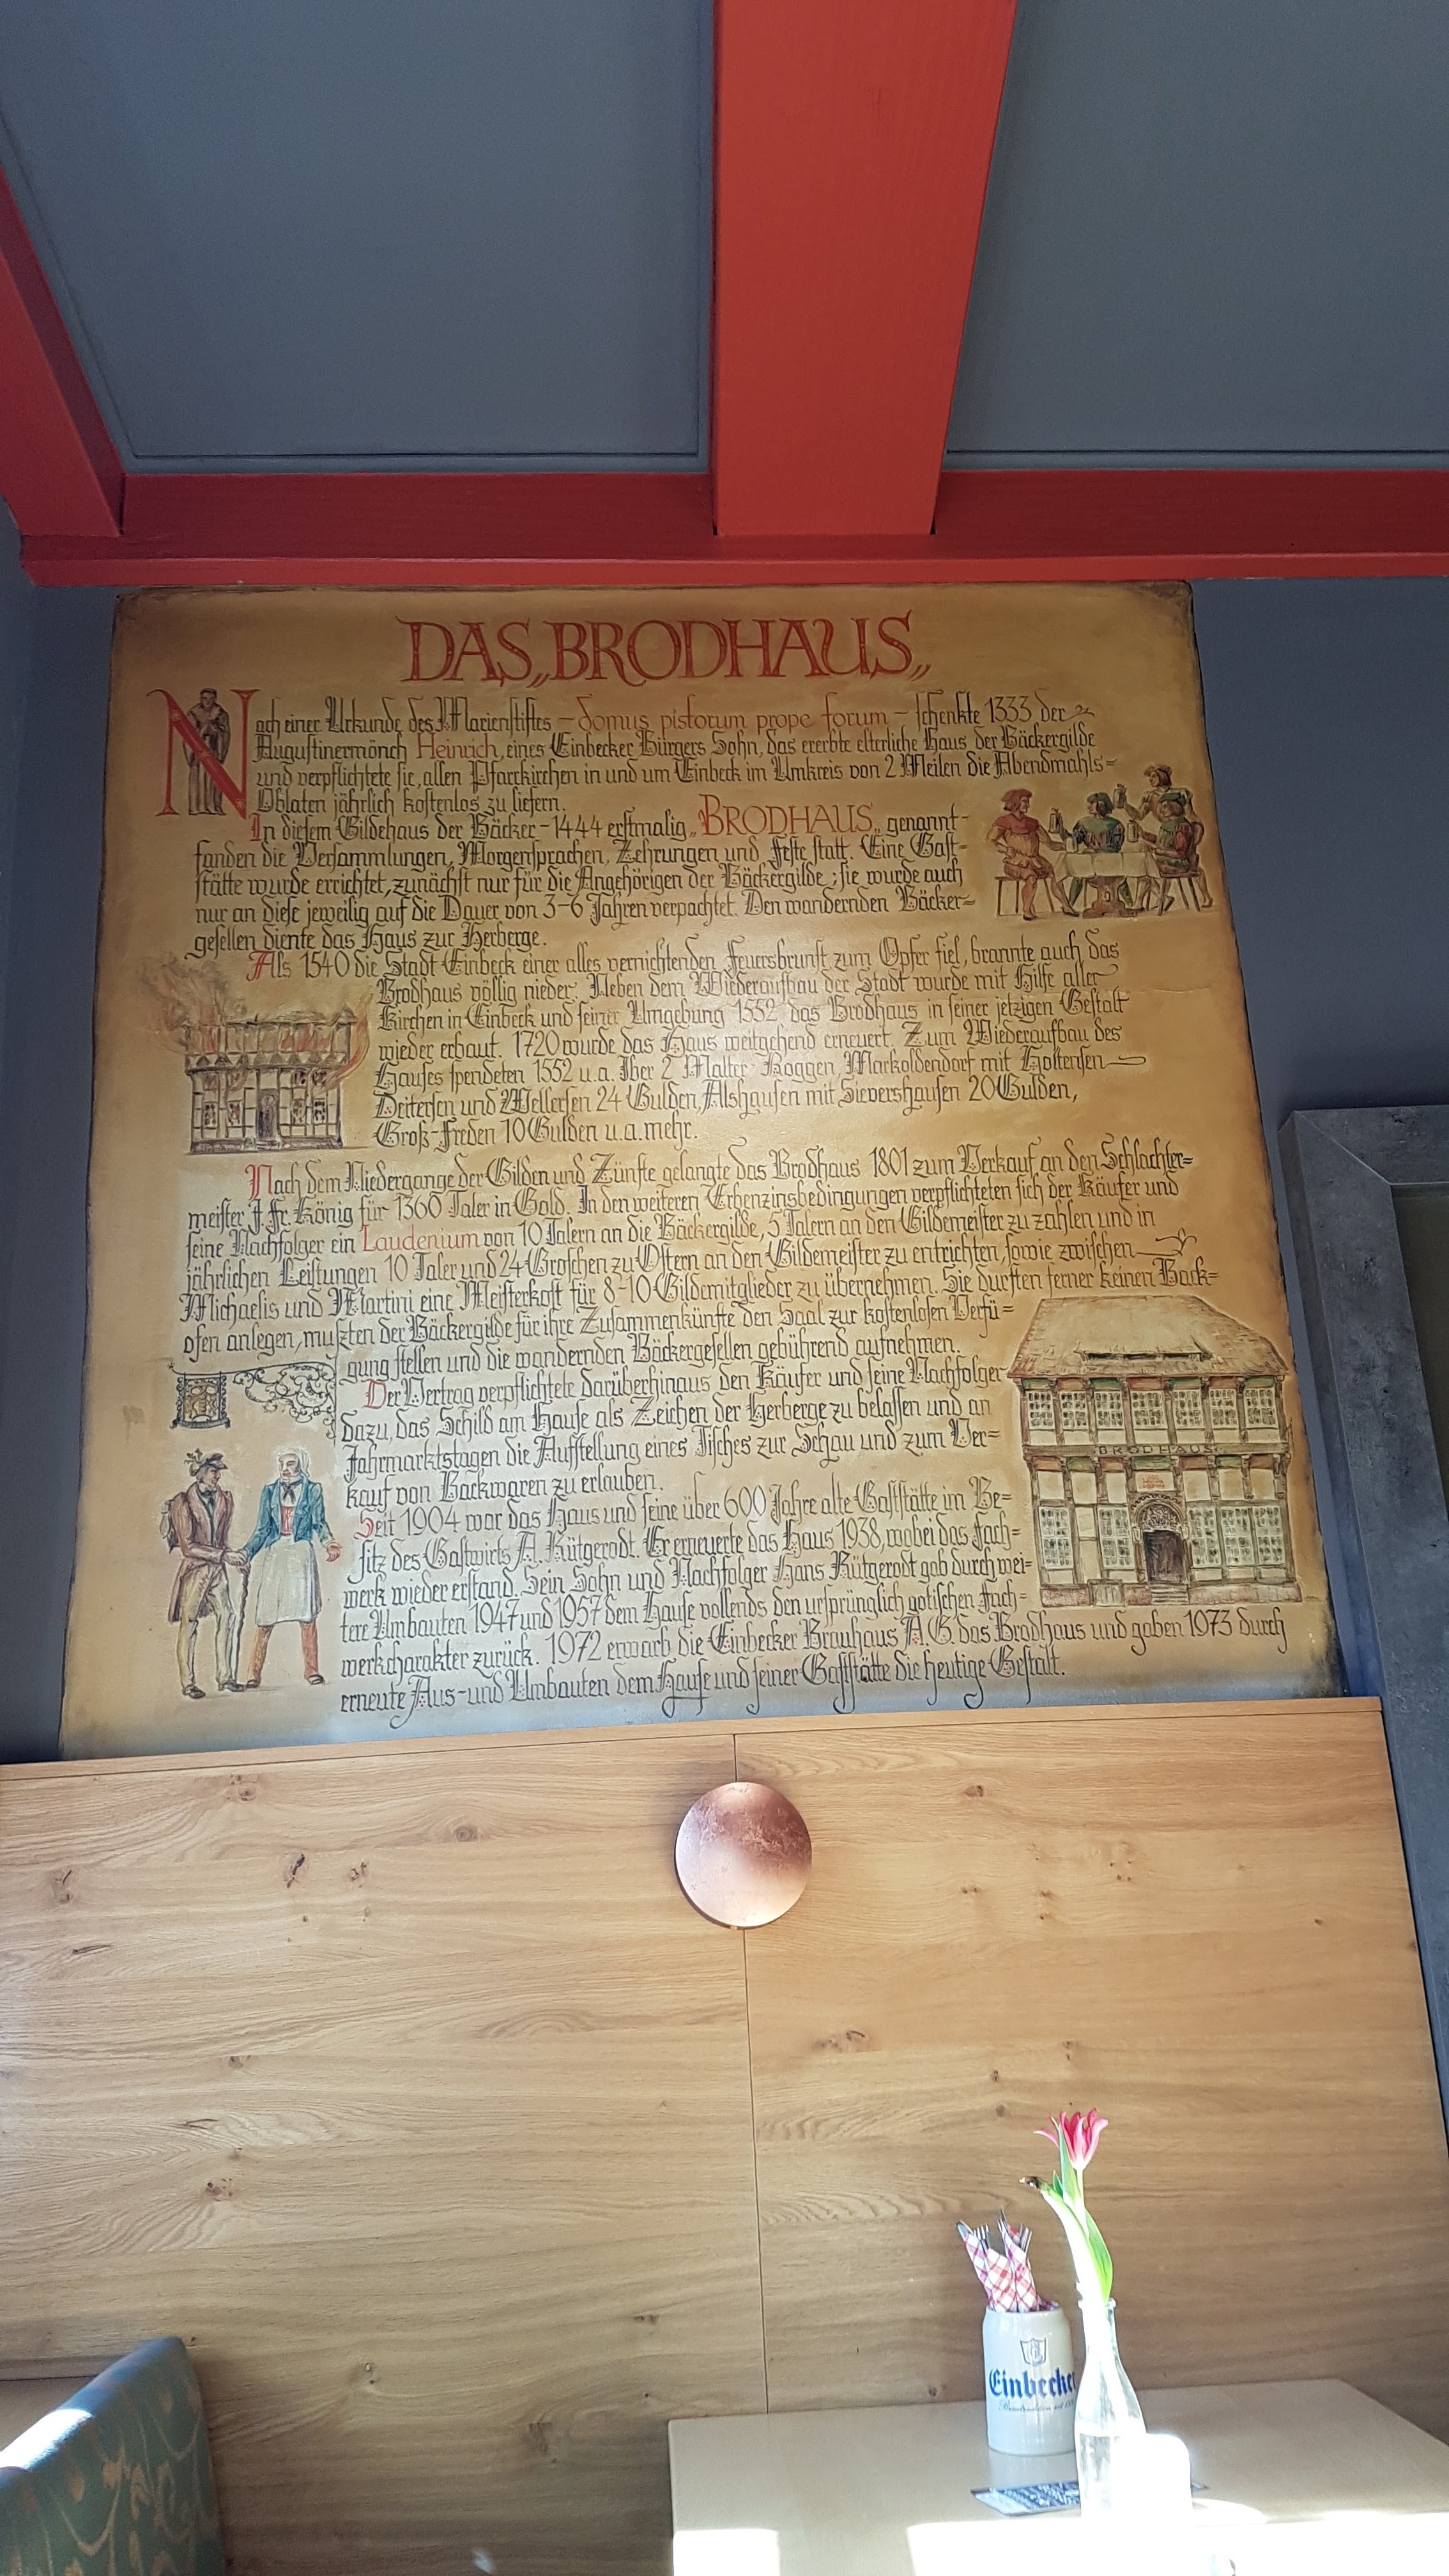 DAS „BRODHAUS„
Nach einer Urkunde des Marienstiftes – domus pistorum prope forum – schenkte 1333 der
Augustinermönch Heinrich, eines Einbecker Bürgers Sohn, das ererbte elterliche Haus der Bäckergilde
und verpflichtete sie, allen Pfarrkirchen in und um Einbeck im Umkreis von 2 Meilen die Abendmahls=
Oblaten jährlich kostenlos zu liefern.
In diesem Gildehaus der Bäcker – 1444 erstmalig „BRODHAUS„ genannt-
fanden die Versammlungen, Morgensprachen, Zehrungen und Feste statt. Eine Gast-
stätte wurde errichtet, zunächst nur für die Angehörigen der Bäckergilde; sie wurde auch
nur an diese jeweilig auf die Dauer von 3-6 Jahren verpachtet. Den wandernden Bäcker=
gesellen diente das Haus zur Herberge.
Als 1540 die Stadt Einbeck einer alles vernichtenden Feuersbrunst zum Opfer fiel, brannte auch das
Brodhaus völlig nieder. Neben dem Wiederaufbau der Stadt wurde mit Hilfe aller
Kirchen in Einbeck und seiner Umgebung 1552 das Brodhaus in seiner jetzigen Gestalt
wieder erbaut. 1720 wurde das Haus weitgehend erneuert. Zum Wiederaufbau des
Hauses spendeten 1552 u.a. Iber 2 Malter Roggen, Markoldendorf mit Holtensen
Deitersen und Wellersen 24 Gulden, Alshausen mit Sievershausen 20 Gulden,
Groß-Freden 10 Gulden u.a. mehr.
Nach dem Niedergange der Gilden und Zünfte gelangte das Brodhaus 1801 zum Verkauf an den Schlachter=
meister J. Fr. König für 1360 Taler in Gold. In den weiteren Erbenzinsbedingungen verpflichteten sich der Käufer und
seine Nachfolger ein Laudenium von 10 Talern an die Bäckergilde, 5 Talern an den Gildemeister zu zahlen und in
jährlichen Leistungen 10 Taler und 24 Groschen zu Ostern an den Gildemeister zu entrichten, sowie zwischen
Michaelis und Martini eine Meisterkost für 8-10 Gildemitglieder zu übernehmen. Sie durften ferner keinen Back=
ofen anlegen, mußten der Bäckergilde für ihre Zusammenkünfte den Saal zur kostenlosen Verfü=
gung stellen und die wandernden Bäckergesellen gebührend aufnehmen.
Der Vertrag verpflichtete darüberhinaus den Käufer und seine Nachfolger
dazu, das Schild am Hause als Zeichen der Herberge zu belassen und an
Jahrmarktstagen die Aufstellung eines Tisches zur Schau und zum Ver=
kauf von Backwaren zu erlauben.
Seit 1904 war das Haus und seine über 600 Jahre alte Gaststätte im Be=
sitz des Gastwirts A. Rütgerodt. Er erneuerte das Haus 1938, wobei das Fach=
werk wieder erstand. Sein Sohn und Nachfolger Hans Rütgerodt gab durch wei=
tere Umbauten 1947 und 1957 dem Hause vollends den ursprünglich gotischen Fach=
werkcharakter zurück. 1972 erwarb die Einbecker Brauhaus A.G. das Brodhaus und gaben 1973 durch
erneute Aus- und Umbauten dem Hause und seiner Gaststätte die heutige Gestalt.
BRODHAUS
Einbecker